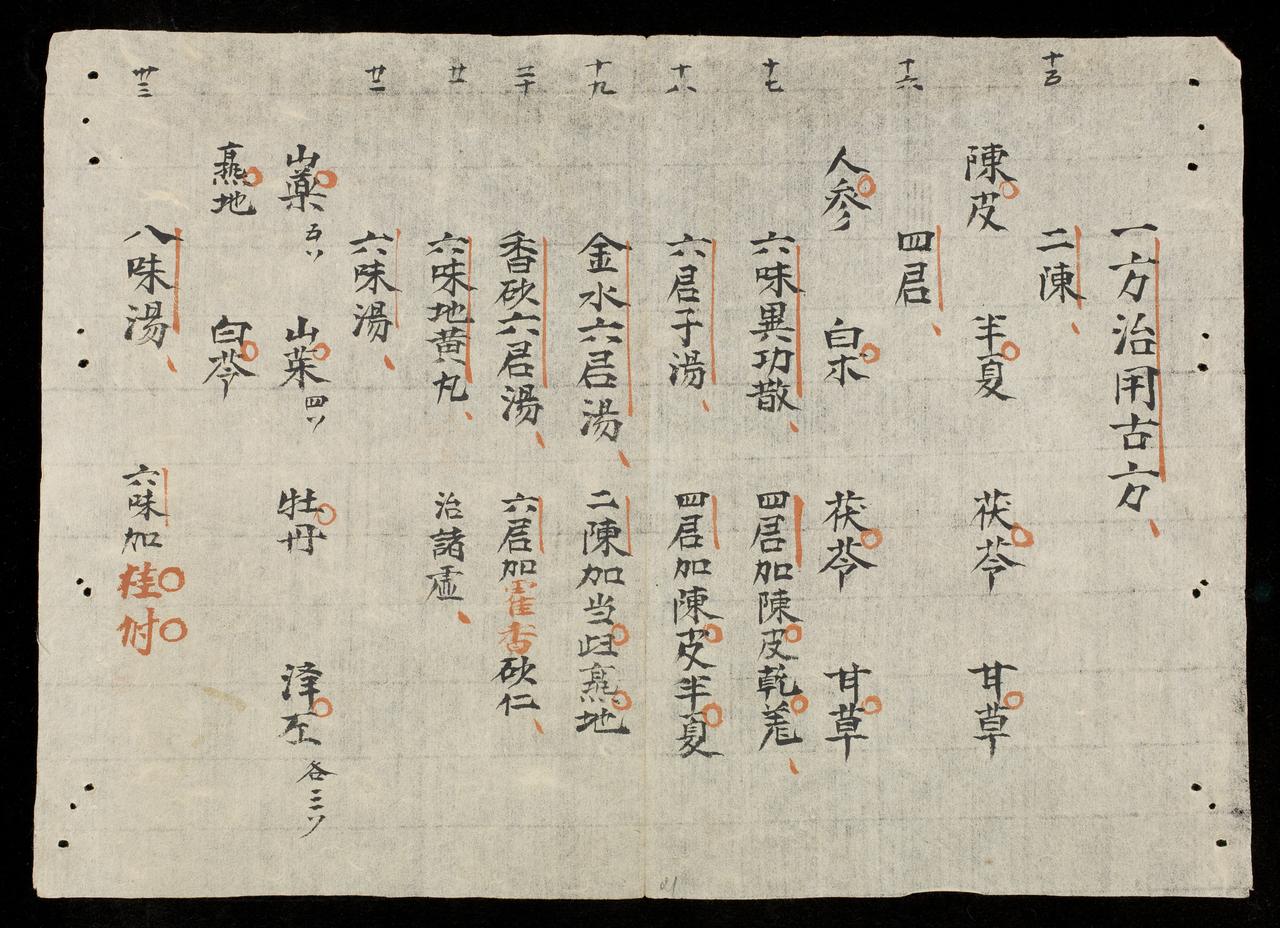 一方治用古方
十五 二陳
陳皮 半夏 茯苓 甘草
十六 四君
人参 白朮 茯苓 甘草
十七 六味異功散 四君加陳皮乾羌
十八 六君子湯 四君加陳皮半夏
十九 金水六君湯 二陳加当归熟地
二十 香砂六君湯 六君加霍香砂仁
廿一 六味地黄丸 治諸虚
廿二 六味湯
山薬 五ソ 山茱 四ソ 牡丹 泽 各三ソ
熟地 白苓
廿三 八味湯 六味加桂付